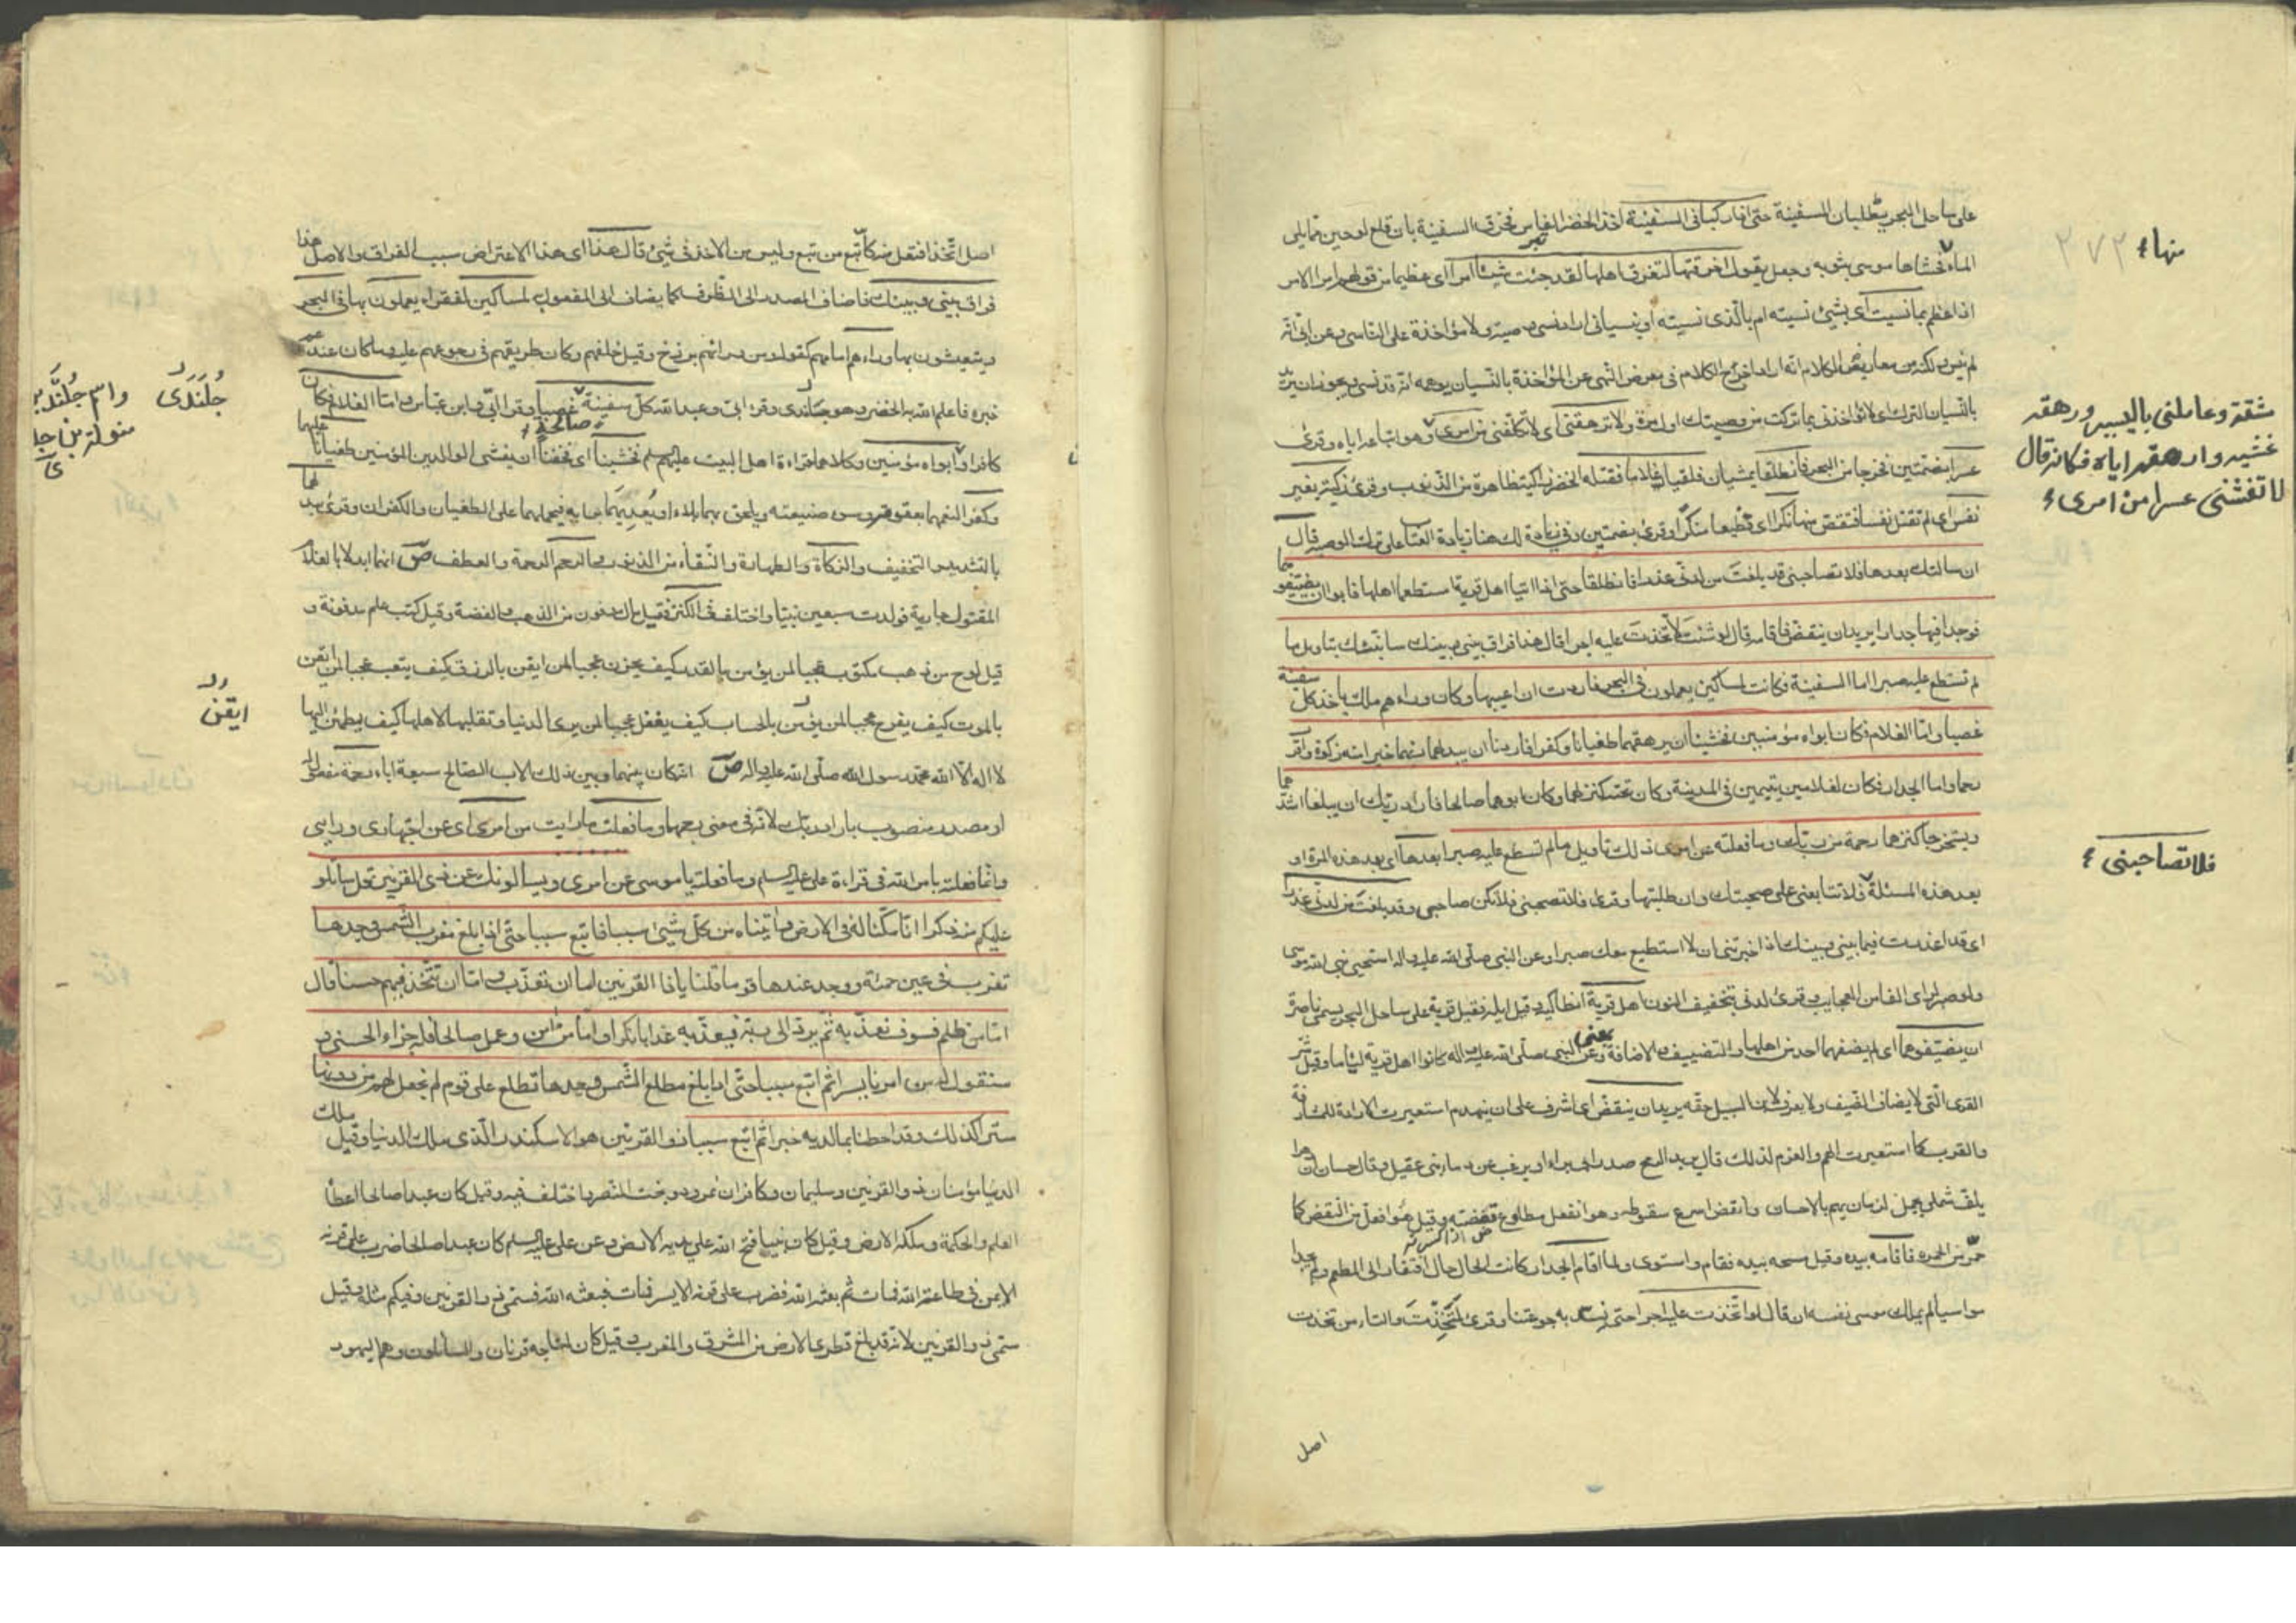 على ساحل البحر يطلبان السفينة حتى اذا ركبا في السفينة اخذ الخضر الفاس فخرق السفينة بان قلع لوحين مما يلي
الماء فحشاها موسى بثوبه وجعل يقول اخرقتها لتغرق اهلها لقد جئت شيئا امرا اى عظيما من قولهم امر الامر
اذا عظم بما نسيت اى بشئ نسيته او بالذى نسيته او بنسيانى اراد نسى وصيته ولا مؤاخذة على الناسى وعن ابى انه
لم ينس ولكنه من معاريض الكلام انه اراد اخرج الكلام في معرض النهى عن المؤاخذة بالنسيان يوهمه انه قد نسى ويجوز ان يريد
بالنسيان الترك اى لا تؤاخذنى بما تركت من وصيتك اول مرة ولا ترهقنى اى لا تكلفنى من امرى وهو اتباعه اياه وقرئ
عسرا بضمتين فخرجا من البحر فانطلقا يمشيان فلقيا غلاما فقتله الخضر زاكية طاهرة من الذنوب وقرئ زكية بغير
نفس اى لم تقتل نفسا فتقتص منها نكرا اى فظيعا منكرا وقرئ بضمتين وفي زيادة لك هنا زيادة العتاب على ترك الوصية قال
ان سالتك بعدها فلا تصاحبنى قد بلغت من لدنى عذرا فانطلقا حتى اذا اتيا اهل قرية استطعما اهلها فابوا ان يضيفوهما
فوجدا فيها جدارا يريد ان ينقض فاقامه قال لو شئت لاتخذت عليه اجرا قال هذا فراق بينى وبينك سانبئك بتاويل ما
لم تستطع عليه صبرا اما السفينة فكانت لمساكين يعملون في البحر فاردت ان اعيبها وكان وراءهم ملك ياخذ كل سفينة
غصبا واما الغلام فكان ابواه مؤمنين فخشينا ان يرهقهما طغيانا وكفرا فاردنا ان يبدلهما ربهما خيرا منه زكوة واقرب
رحما واما الجدار فكان لغلامين يتيمين في المدينة وكان تحته كنز لهما وكان ابوهما صالحا فاراد ربك ان يبلغا اشدهما
ويستخرجا كنزهما رحمة من ربك وما فعلته عن امرى ذلك تاويل ما لم تسطع عليه صبرا بعدها اى بعد هذه المرة او
بعد هذه المسئلة فلا تتابعنى على صحبتك وان طلبتها وقرئ فلا تصحبنى فلا تكن صاحبى وقد بلغت من لدنى عذرا
اى قد اعذرت فيما بينى وبينك اذا خبرتنى ان لا استطيع معك صبرا وعن النبى صلى الله عليه واله استحيى نبى الله موسى
ولو صبر لراى الفا من العجايب وقرئ لدنى بتخفيف النون اهل قرية انطاكية وقيل ايلة وقيل قرية على ساحل البحر يسمى ناصرة
ان يضيفوهما اى لم يضفهما احد من اهلها والتضييف والاضافة بمعنى وعن النبى صلى الله عليه واله كانوا اهل قرية لئاما وقيل شر
القرى التى لا يضاف الضيف ولا يعرف لابن السبيل حقه يريد ان ينقض اى اشرف على ان ينهدم استعيرت الارادة للمشارفة
والقرب كما استعيرت الهم والعزم لذلك قال يريد الرمح صدر ابى براء ويرغب عن دماء بنى عقيل وقال حسان ان دهرا
يلف شملى بجمل لزمان يهم بالاحسان وانقض اسرع سقوطه وهو انفعل مطاوع قضضته وقيل هو افعل من النقض كما
حمر من الحمرة فاقامه بيده وقيل مسحه بيده فقام واستوى ولما اقام الجدار كانت الحال حال افتقار الى المطعم ولم يجدا
مواسيا لم يملك موسى نفسه ان قال لو اتخذت عليه اجرا حتى نسد به جوعتنا وقرئ لتخذت والتاء من تخذت
اصل
منها ء
٢٧٢
مشقة وعاملنى باليسر ورهقه
غشيه وارهقه اياه فكانه قال
لا تغشنى عسرا من امرى ء
فلا تصاحبنى ء
اصل اتخذ افتعل منه كاتبع من تبع وليس من الاخذ في شئ قال هذا اى هذا الاعتراض سبب الفراق والاصل هذا
فراق بينى وبينك فاضاف المصدر الى الظرف كما يضاف الى المفعول لمساكين لفقراء يعملون بها في البحر
ويتعيشون بها وراءهم امامهم كقوله ومن ورائهم برزخ وقيل خلفهم وكان طريقهم في رجوعهم عليه وما كان عندهم
خبره فاعلم الله به الخضر وهو جلندى وقرء ابى وعبد الله كل سفينة صالحة غصبا وقرء ابى وابن عباس واما الغلام فكان
كافرا وابواه مؤمنين وكلاهما قراءة اهل البيت عليهم السلم فخشينا اى فخفنا ان يغشى الوالدين المؤمنين طغيانا عليهما
وكفرا لنعمهما بعقوقه وسوء صنيعته ويلحق بهما بلاء او يعديهما بدايه فيحملهما على الطغيان والكفران وقرئ يبدلهما
بالتشديد والتخفيف والزكاة والطهارة والنقاء من الذنوب والرحم الرحمة والعطف ص انهما ابدلا بالغلام
المقتول جارية فولدت سبعين نبيا واختلف في الكنز فقيل مال مدفون من الذهب والفضة وقيل كتب علم مدفونة و
قيل لوح من ذهب مكتوب فيه عجبا لمن يؤمن بالقدر كيف يحزن عجبا لمن ايقن بالرزق كيف يتعب عجبا لمن ايقن
بالموت كيف يفرح عجبا لمن يؤمن بالحساب كيف يغفل عجبا لمن يرى الدنيا وتقلبها لاهلها كيف يطمئن اليها
لا اله الا الله محمد رسول الله صلى الله عليه واله ص انه كان بينهما وبين ذلك الاب الصالح سبعة اباء رحمة مفعول له
او مصدر منصوب باراد ربك لانه في معنى رحمهما وما فعلت ما رايت من امرى اى عن اجتهادى ورايى
وانما فعلته بامر الله في قراءة على عليه السلم وما فعلته يا موسى عن امرى ويسالونك عن ذى القرنين قل ساتلو
عليكم منه ذكرا انا مكنا له في الارض واتيناه من كل شئ سببا فاتبع سببا حتى اذا بلغ مغرب الشمس وجدها
تغرب في عين حمئة ووجد عندها قوما قلنا يا ذا القرنين اما ان تعذب واما ان تتخذ فيهم حسنا قال
اما من ظلم فسوف نعذبه ثم يرد الى ربه فيعذبه عذابا نكرا واما من امن وعمل صالحا فله جزاء الحسنى و
سنقول له من امرنا يسرا ثم اتبع سببا حتى اذا بلغ مطلع الشمس وجدها تطلع على قوم لم نجعل لهم من دونها
سترا كذلك وقد احطنا بما لديه خبرا ثم اتبع سببا ذو القرنين هو الاسكندر الذى ملك الدنيا وقيل ملك
الدنيا مؤمنان ذو القرنين وسليمان وكافران نمرود وبخت النصر واختلف فيه وقيل كان عبدا صالحا اعطاه
العلم والحكمة وملكه الارض وقيل كان نبيا فتح الله على يديه الارض وعن على عليه السلم كان عبدا صالحا ضرب على قرنه
الايمن في طاعة الله فمات ثم بعثه الله فضرب على قرنه الايسر فمات فبعثه الله فسمى ذو القرنين وفيكم مثله وقيل
سمى ذو القرنين لانه قد بلغ قطرى الارض من المشرق والمغرب وقيل كان لتاجه قرنان والسائلون وهم اليهود
جلندى
واسم جلندى
ايقن